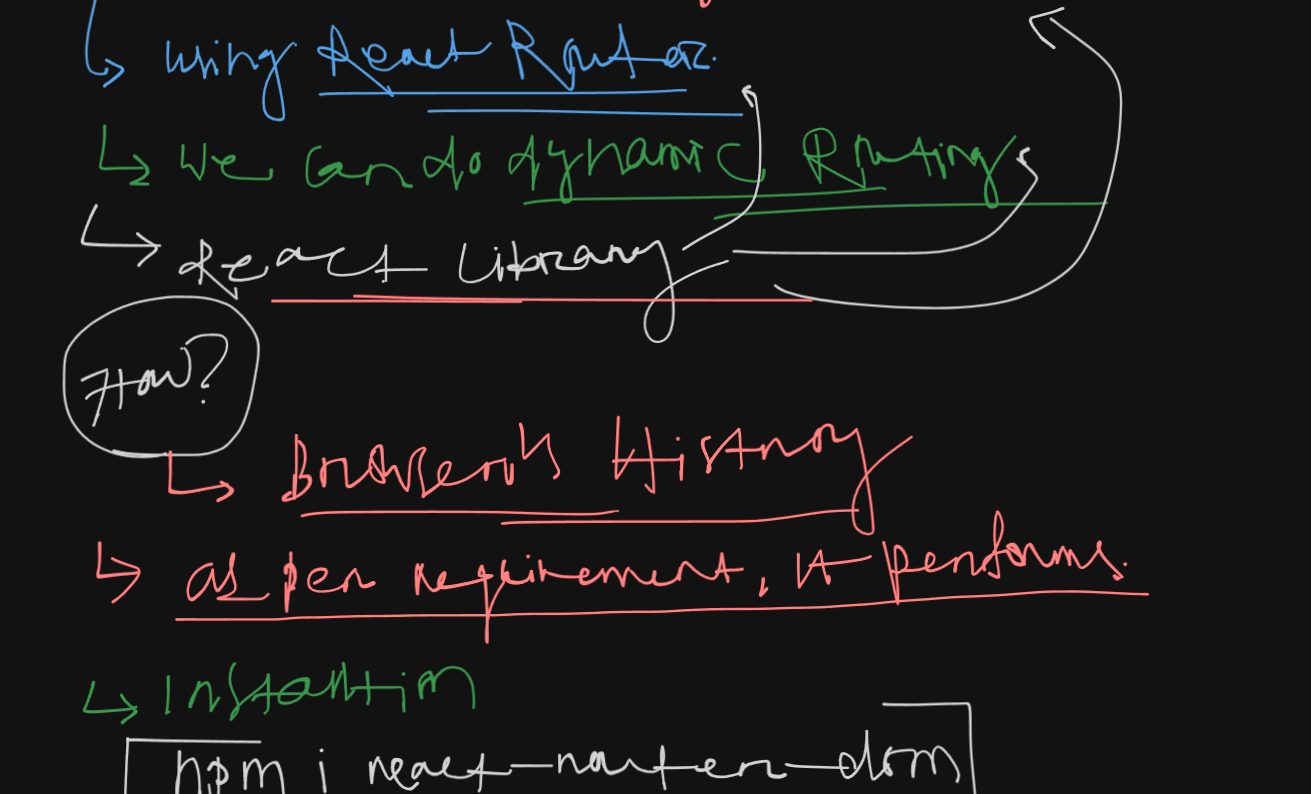 ↳ using React Router.
↳ We can do dynamic Routing
↳ React Library
How?
↳ Browser's History
↳ as per requirement, it performs.
↳ Installation
npm i react-router-dom